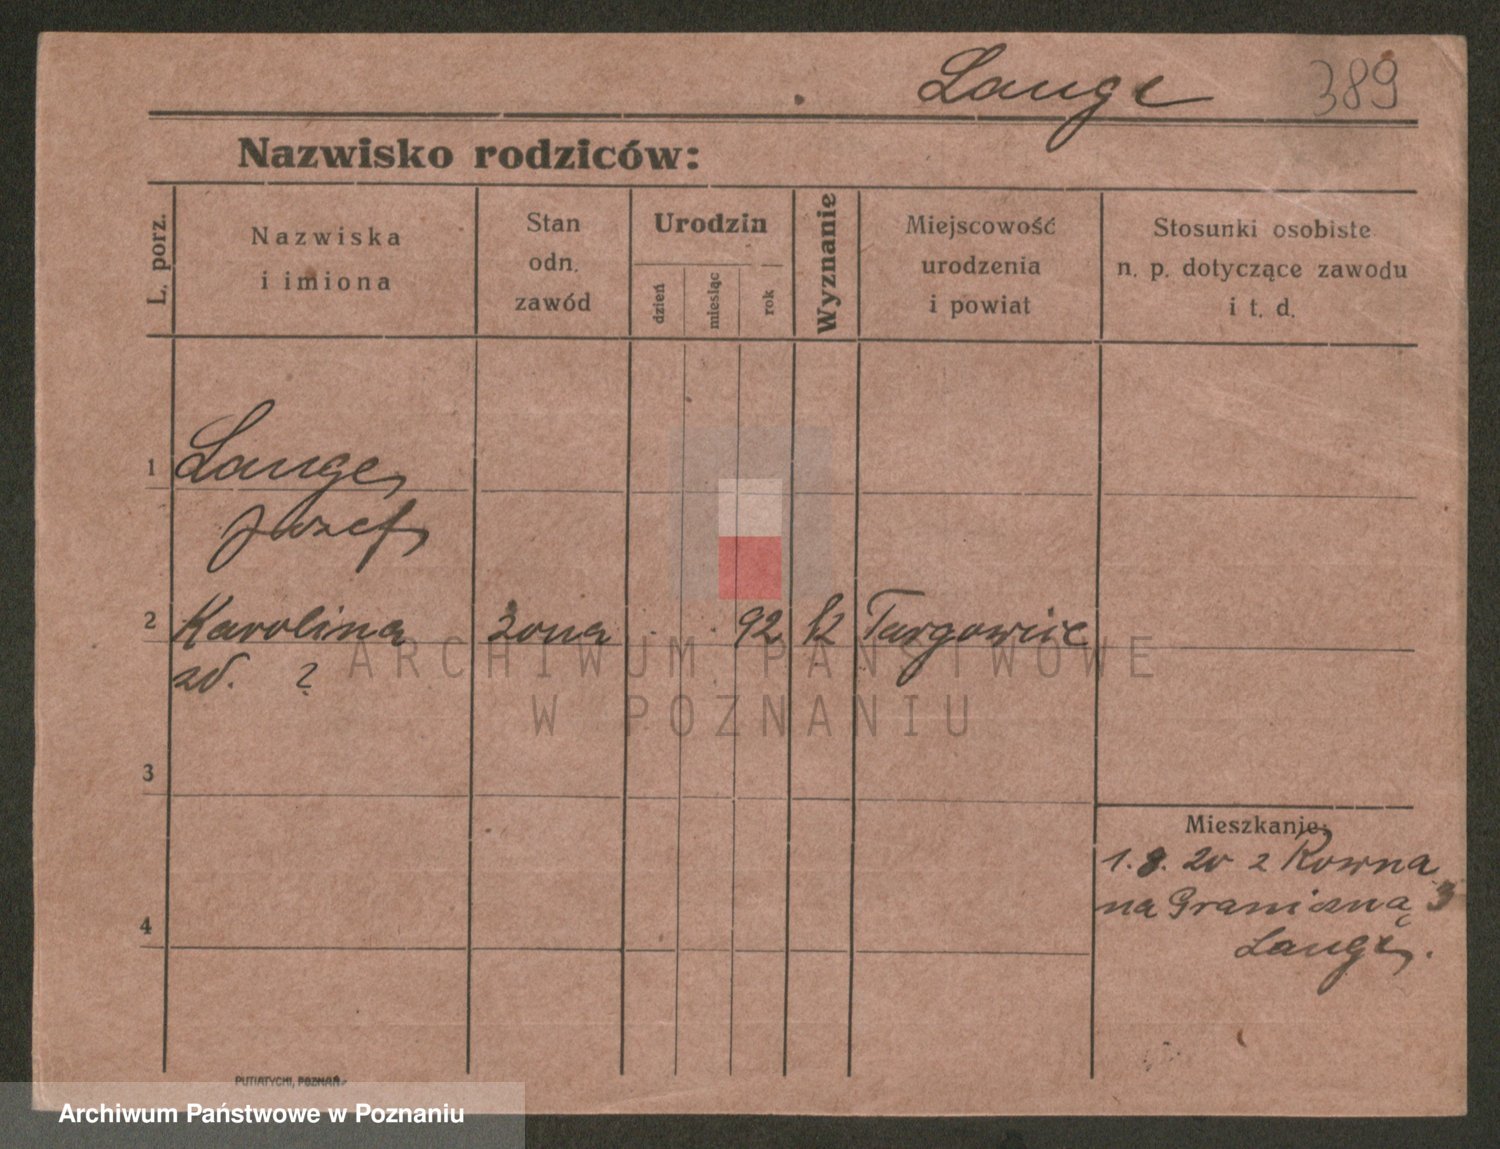 Lange 389
Nazwisko rodziców:
L. porz.
Nazwiska
i imiona
Stan
odn.
zawód
Urodzin
dzień
miesiąc
rok
Wyznanie
Miejscowość
urodzenia
i powiat
Stosunki osobiste
n. p. dotyczące zawodu
i t. d.
1 Lange
Jozef
2 Karolina żona 92 k Targowice
zd. ?
ARCHIWUM PAŃSTWOWE
W POZNANIU
3
Mieszkanie:
1. 8. 20 z Kowna
na Graniczną 3
Lange.
4
PUTIATYCKI, POZNAŃ
Archiwum Państwowe w Poznaniu